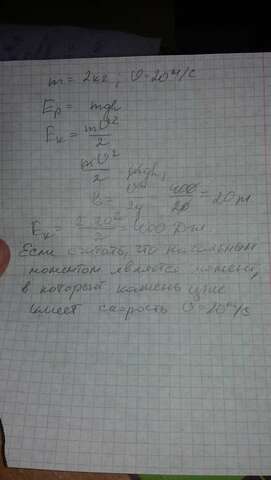 m = 2кг, υ = 20 м/с
Eр = mgh
Eк = mυ²/2
mυ²/2 = mgh,
h = υ²/2g = 400/20 = 20 м
Eк = 2·20²/2 = 400 Дж
Если считать, что начальным
моментом является момент,
в который камень уже
имеет скорость υ = 20 м/с